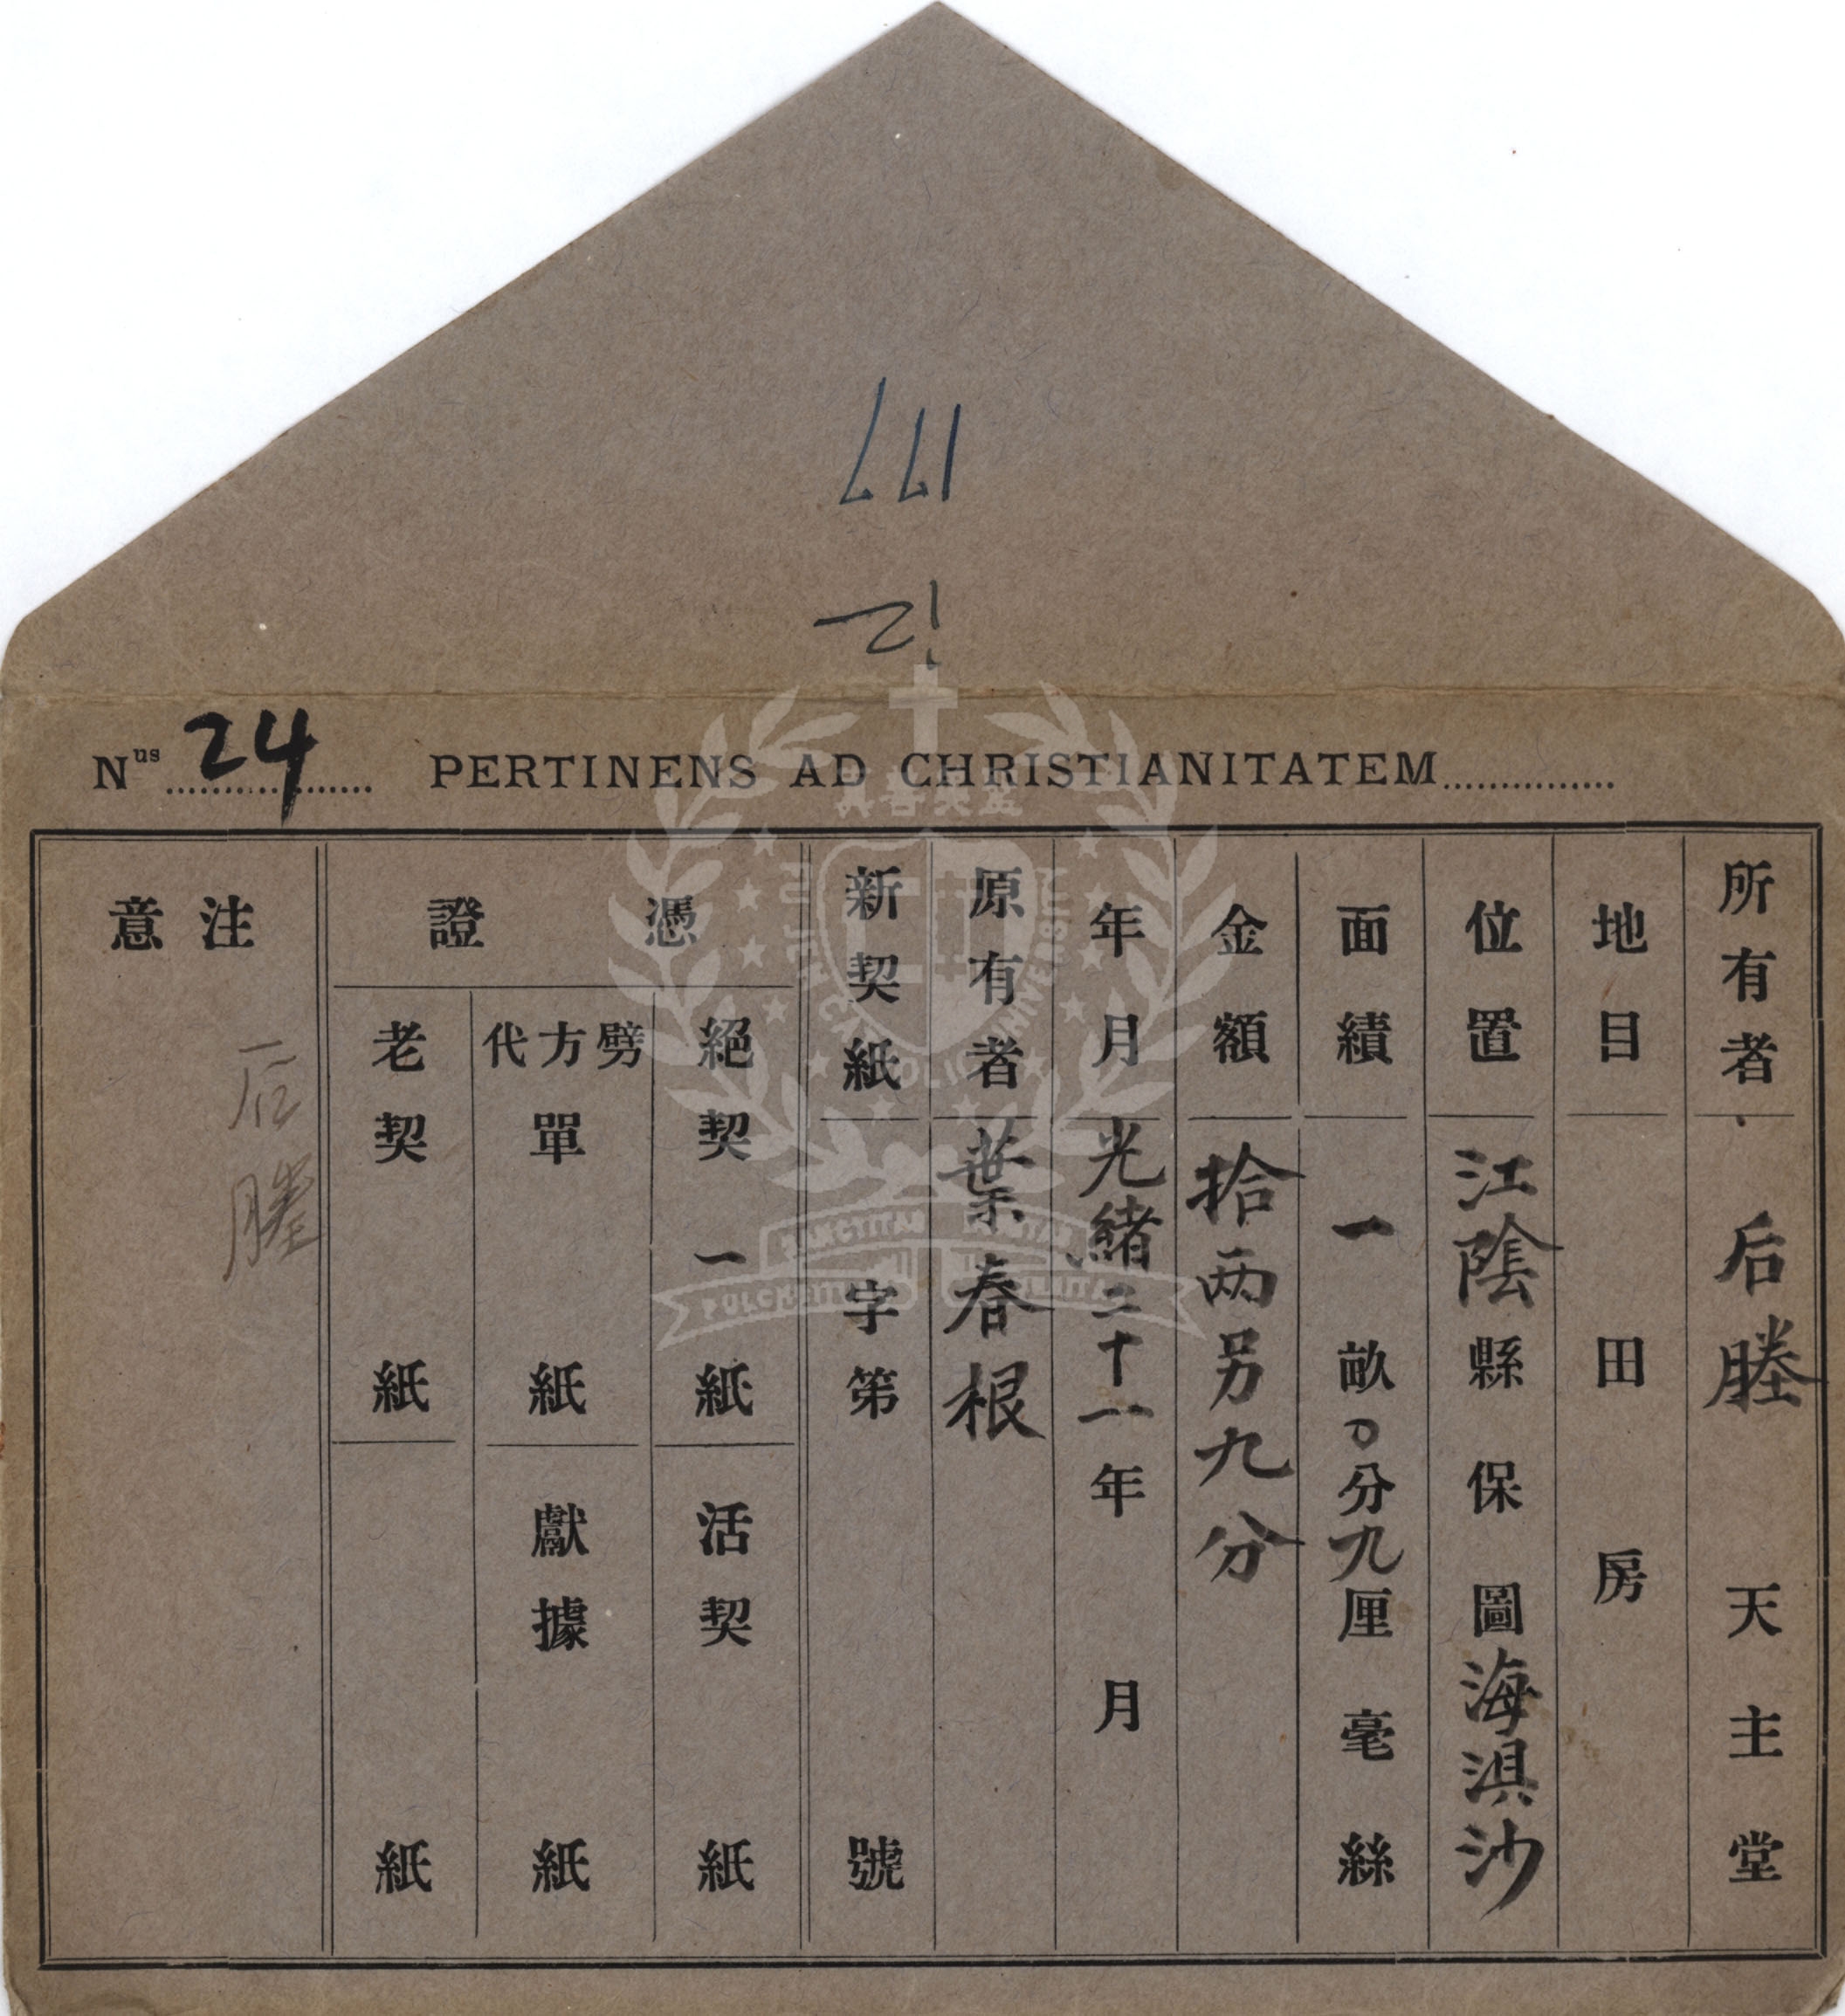 177
Nus 24 PERTINENS AD CHRISTIANITATEM
所有者 后塍 天主堂
地目 田 房
位置 江陰縣 保 圖 海淇沙
面績 一畝0分九厘 毫 絲
金額 拾兩另九分
年月 光緒三十一年 月
原有者 葉春根
新契紙 字第 號
憑證
絕契 一紙 活契 紙
劈方代單 紙 獻據 紙
老契 紙 紙
注意
后塍